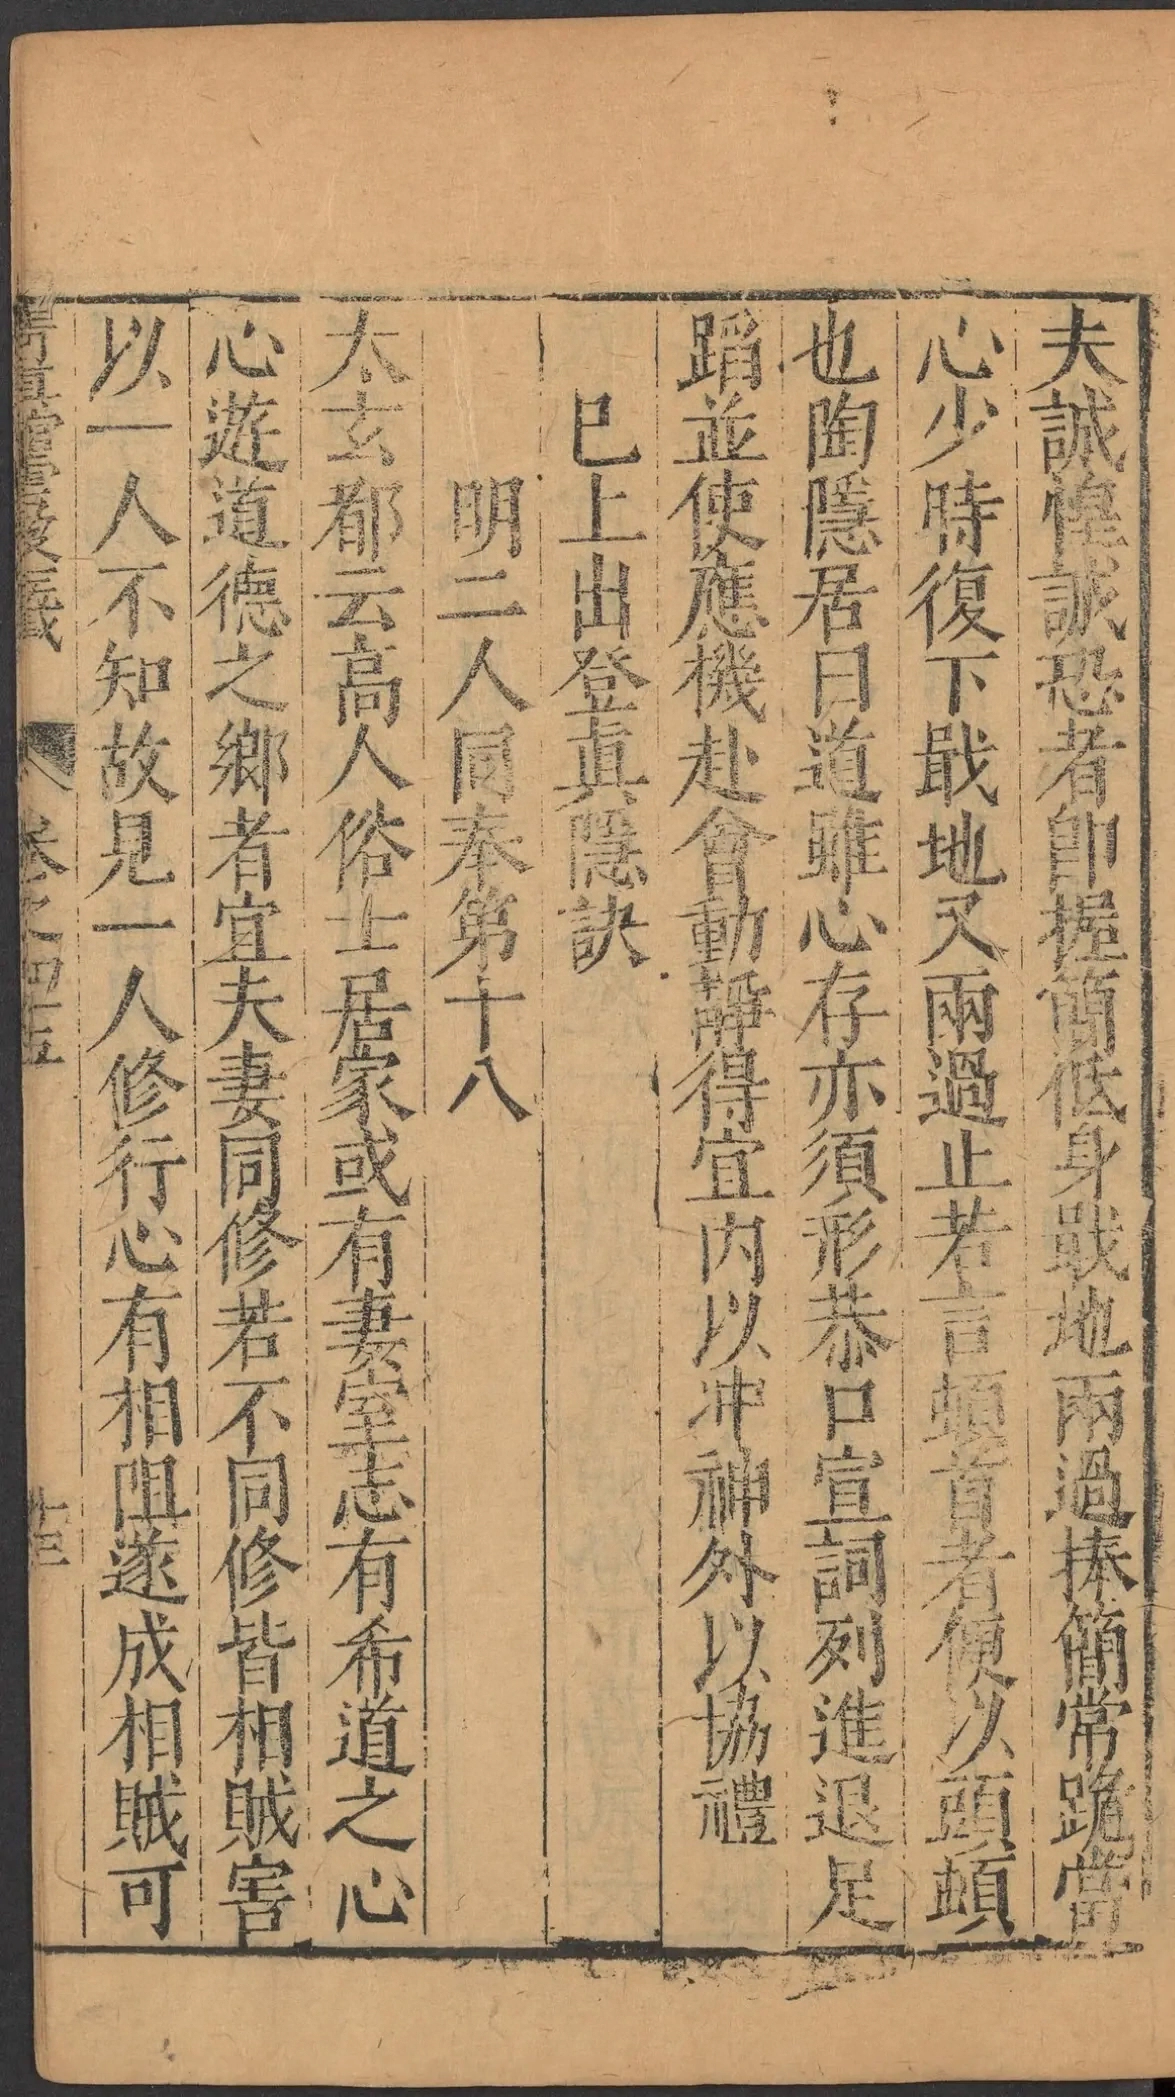 夫誠惶誠恐者卽握簡低身戢地兩過捧簡常跪當
心少時復下戢地又兩過止若言頓首者便以頭頓
也陶隱居曰道雖心存亦須形恭口宣詞列進退足
蹈並使應機赴會動靜得宜內以冲神外以協禮
巳上出登真隱訣
明二人同奉第十八
太玄都云高人俗士居家或有妻室志有希道之心
心遊道德之鄉者宜夫妻同修若不同修皆相賊害
以一人不知故見一人修行心有相阻遂成相賊可
卷之四十五
十三